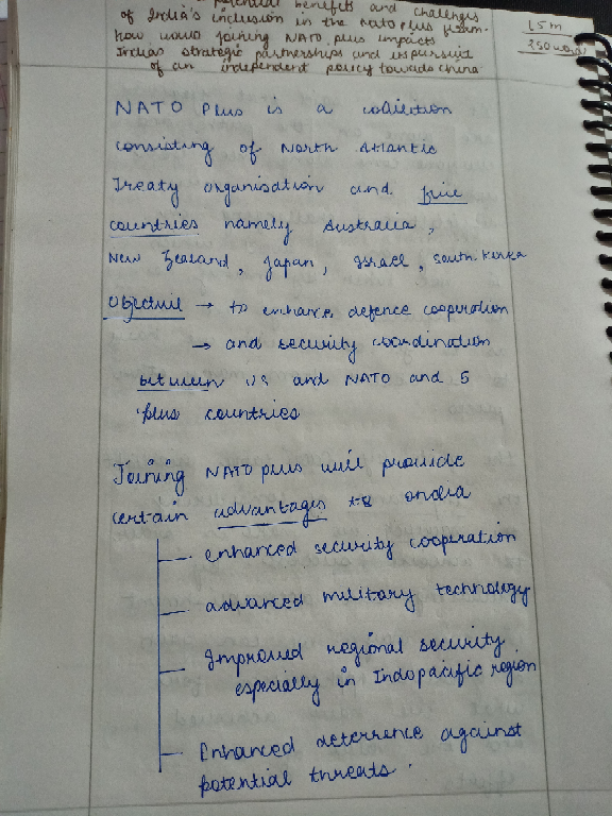 potential benefits and challenges
of India's inclusion in the Nato plus
how would joining NATO plus impacts
Indias strategic partnerships and
of an independent policy towards China
15m
250
NATO Plus is a coalition
consisting of North Atlantic
Treaty organisation and five
countries namely Australia,
New Zealand, Japan, Israel, South. Korea
Objective → to enhance defence cooperation
→ and security coordination
between US and NATO and 5
plus countries
Joining NATO plus will provide
certain advantages to India
enhanced security cooperation
advanced military technology
Improved regional security
especially in Indopacific region
Enhanced deterrence against
potential threats.